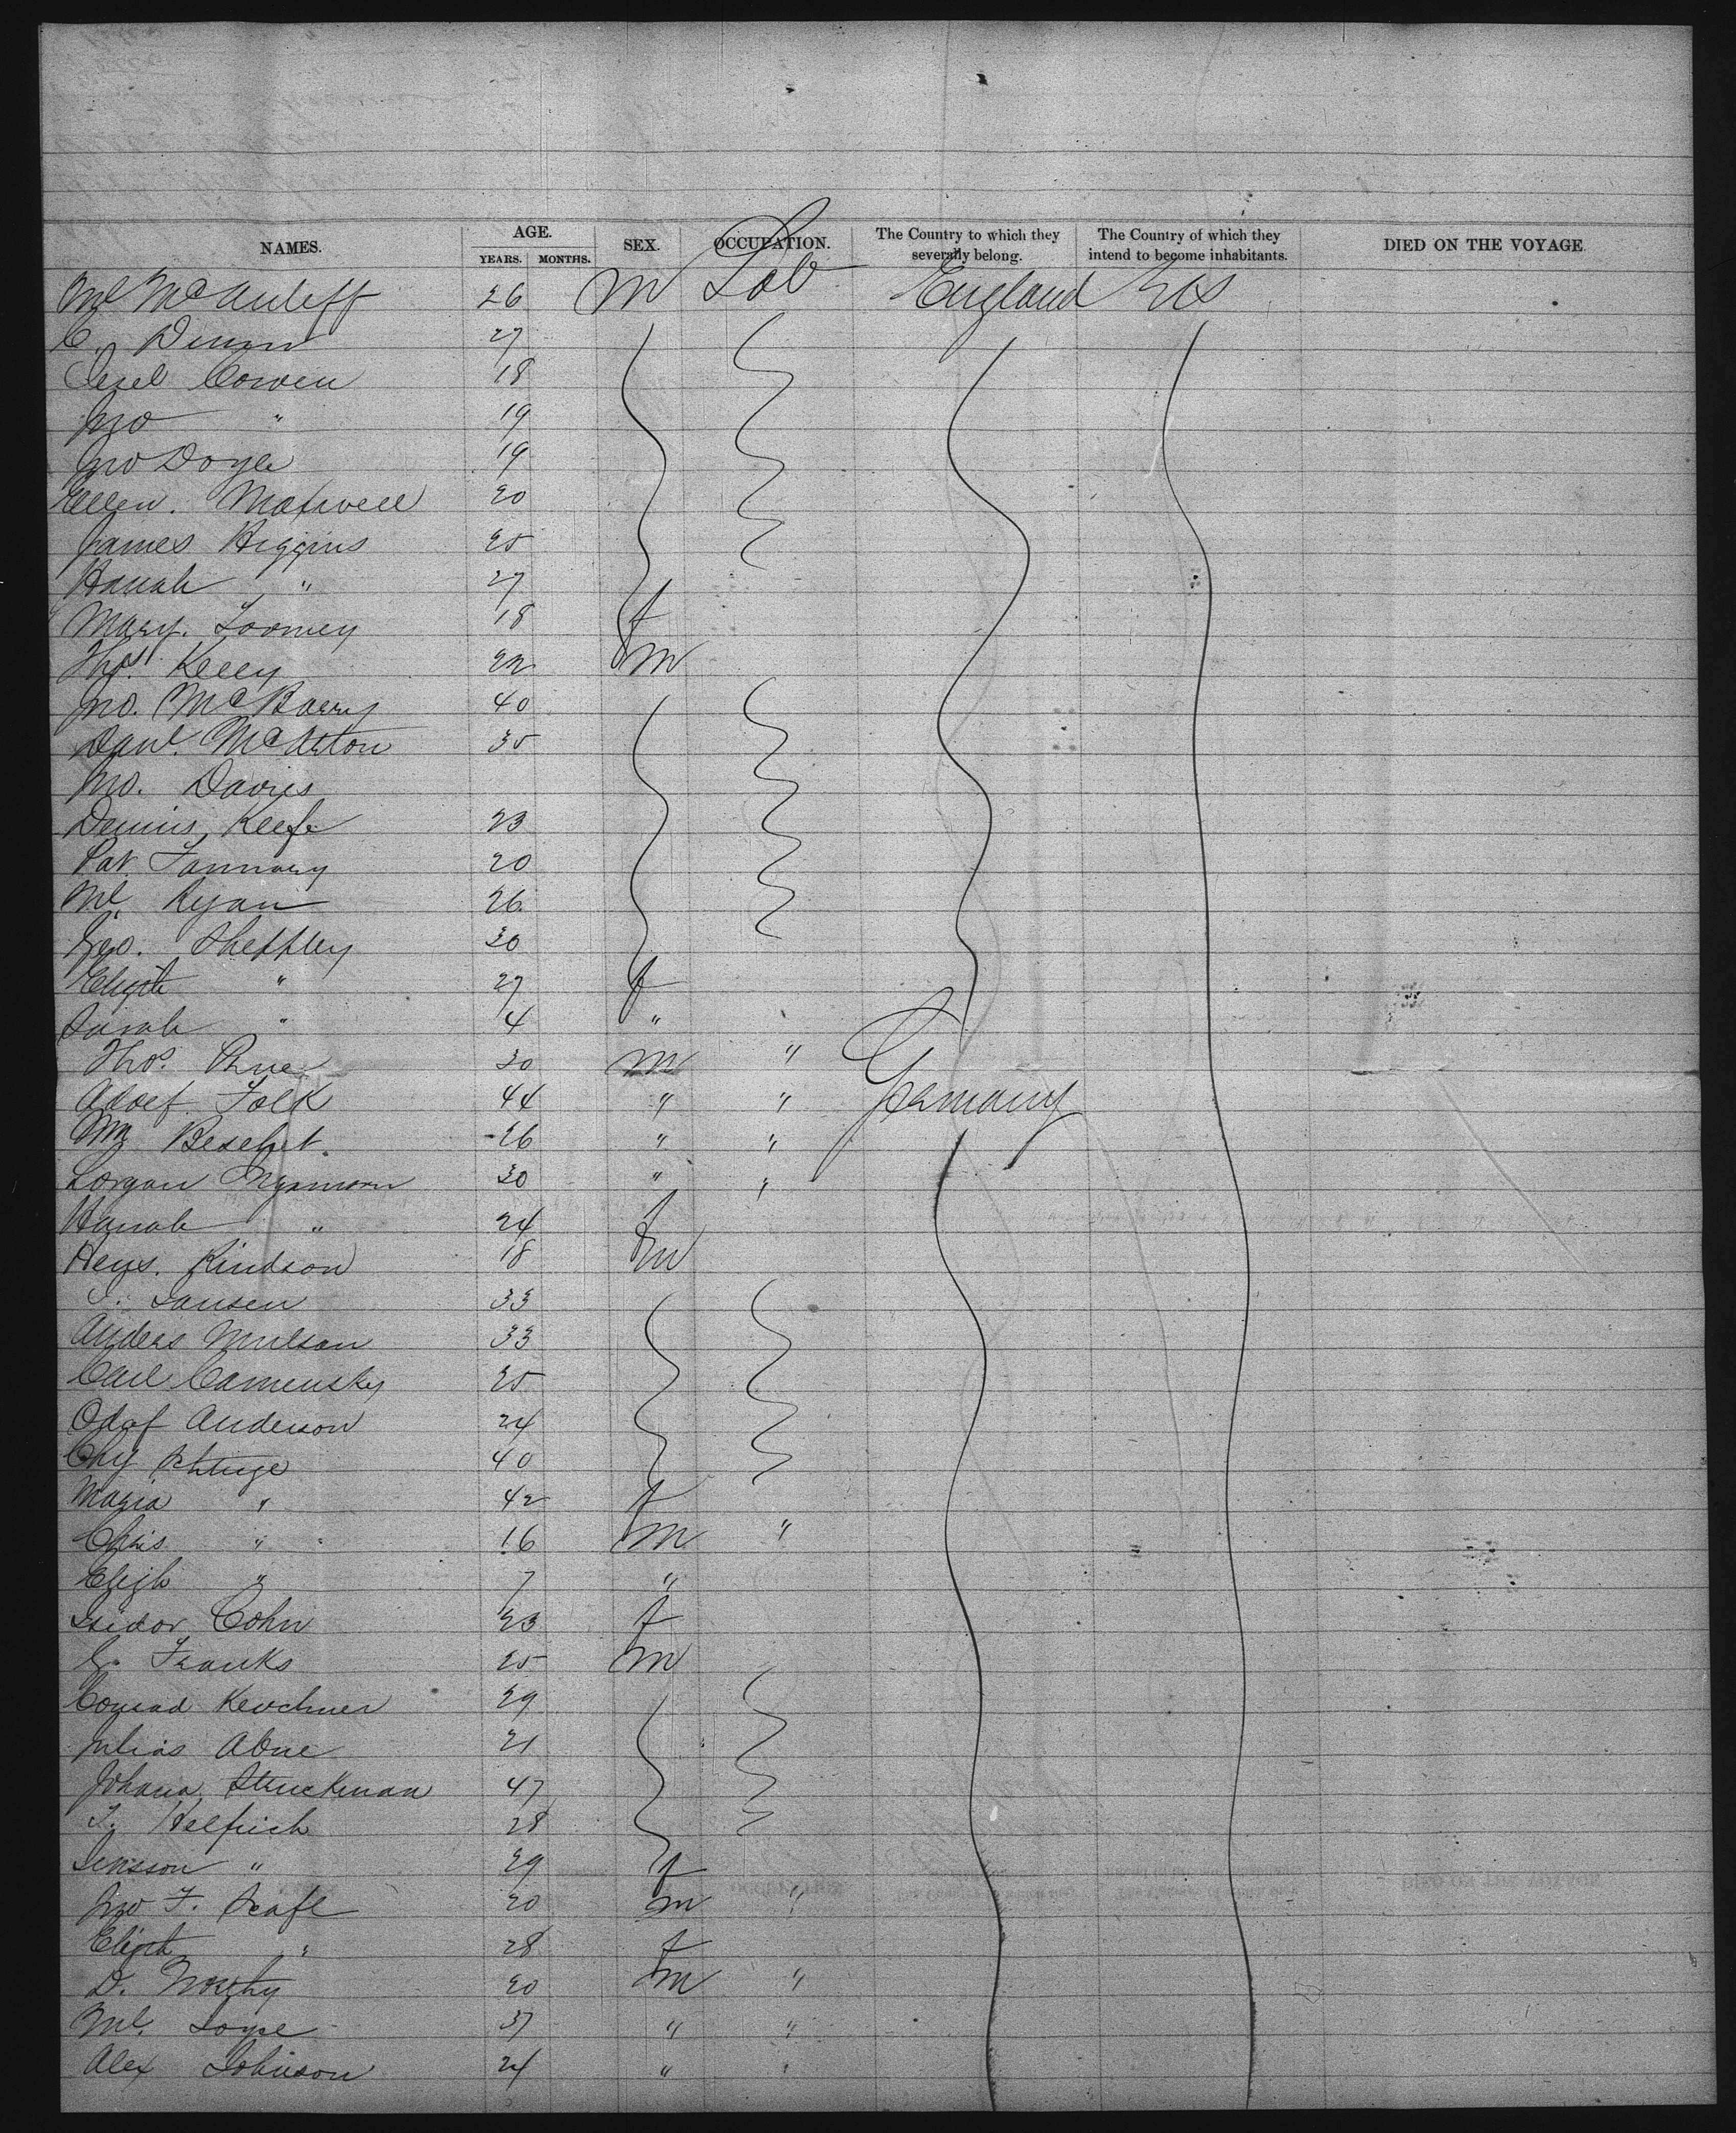 NAMES. AGE. SEX. OCCUPATION. The Country to which they severally belong. The Country of which they intend to become inhabitants. DIED ON THE VOYAGE.
YEARS. MONTHS.
Ml McAuliff 26 m Lab England US
C. 27
Cowen 18
Jno " 19
Jno Doyle 19
Ellen. Maxwell 20
James Higgins 25
Hanah " 27
Mary. Toomey 18 f
Thos. Kelly 22 m
Jno. McBarry 40
Danl. McAston 35
Jno. Davies
Dennis Keefe 23
Pat 20
Ml Ryan 26
Geo. Sheffley 30
Elizth " 27 f
Sarah " 4 "
Thos. 30 m "
Adolf Folk 44 " " Germany
Wm 26 " "
30 " "
Hanah " 24 f
Hens. Kindson 18 m
Jansen 33
Anders 33
Carl Camensky 25
Odof Anderson 24
40
Maria " 42 f
Chris " 16 m "
" 7 "
Isidor Cohn 23 f
G. Franks 25 m
Conrad Kerchner 29
Julias Abne 21
Johana Struckman 47
T. Helfrich 28
" 29 f
Jno F. Scafe 20 m "
Elizth " 28 f
D. 20 m "
Ml. 37 " "
Alex Johnson 24 " "